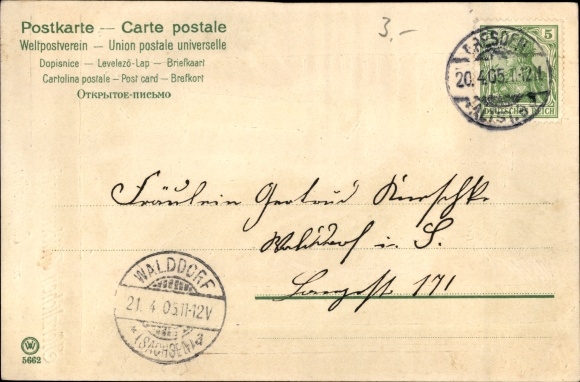 Postkarte — Carte postale
Weltpostverein — Union postale universelle
Dopisnice — Levelező-Lap — Briefkaart
Cartolina postale — Post card — Brefkort
Открытое-письмо
3,-
5
DRESDEN
20.4.05.11-12V
ALTST.
DEUTSCHES REICH
Fräulein Gertrud
Walddorf i. S.
Langest 171
WALDDORF
21. 4 05.11-12V
(SACHSEN)
W
5662